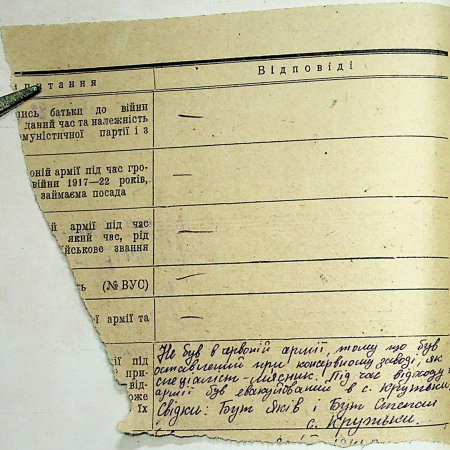 Питання
Відповіді
ись батьки до війни
даний час та належність
муністичної партії і з
—
оній армії під час гро-
війни 1917—22 років,
займаєма посада
—
й армії під час
який час, рід
йськове звання
—
ь (№ ВУС)
—
ї армії та
—
ії під
й при-
від-
оже
їх
Не був в арвоній армії, тому що був
оставлений при консервному заводі, як
спеціаліст мясник. Під час відходу
армії був евакуйований в с. Крутьки.
Свідки: Бут Яків і Бут Степан
с. Крутьки.